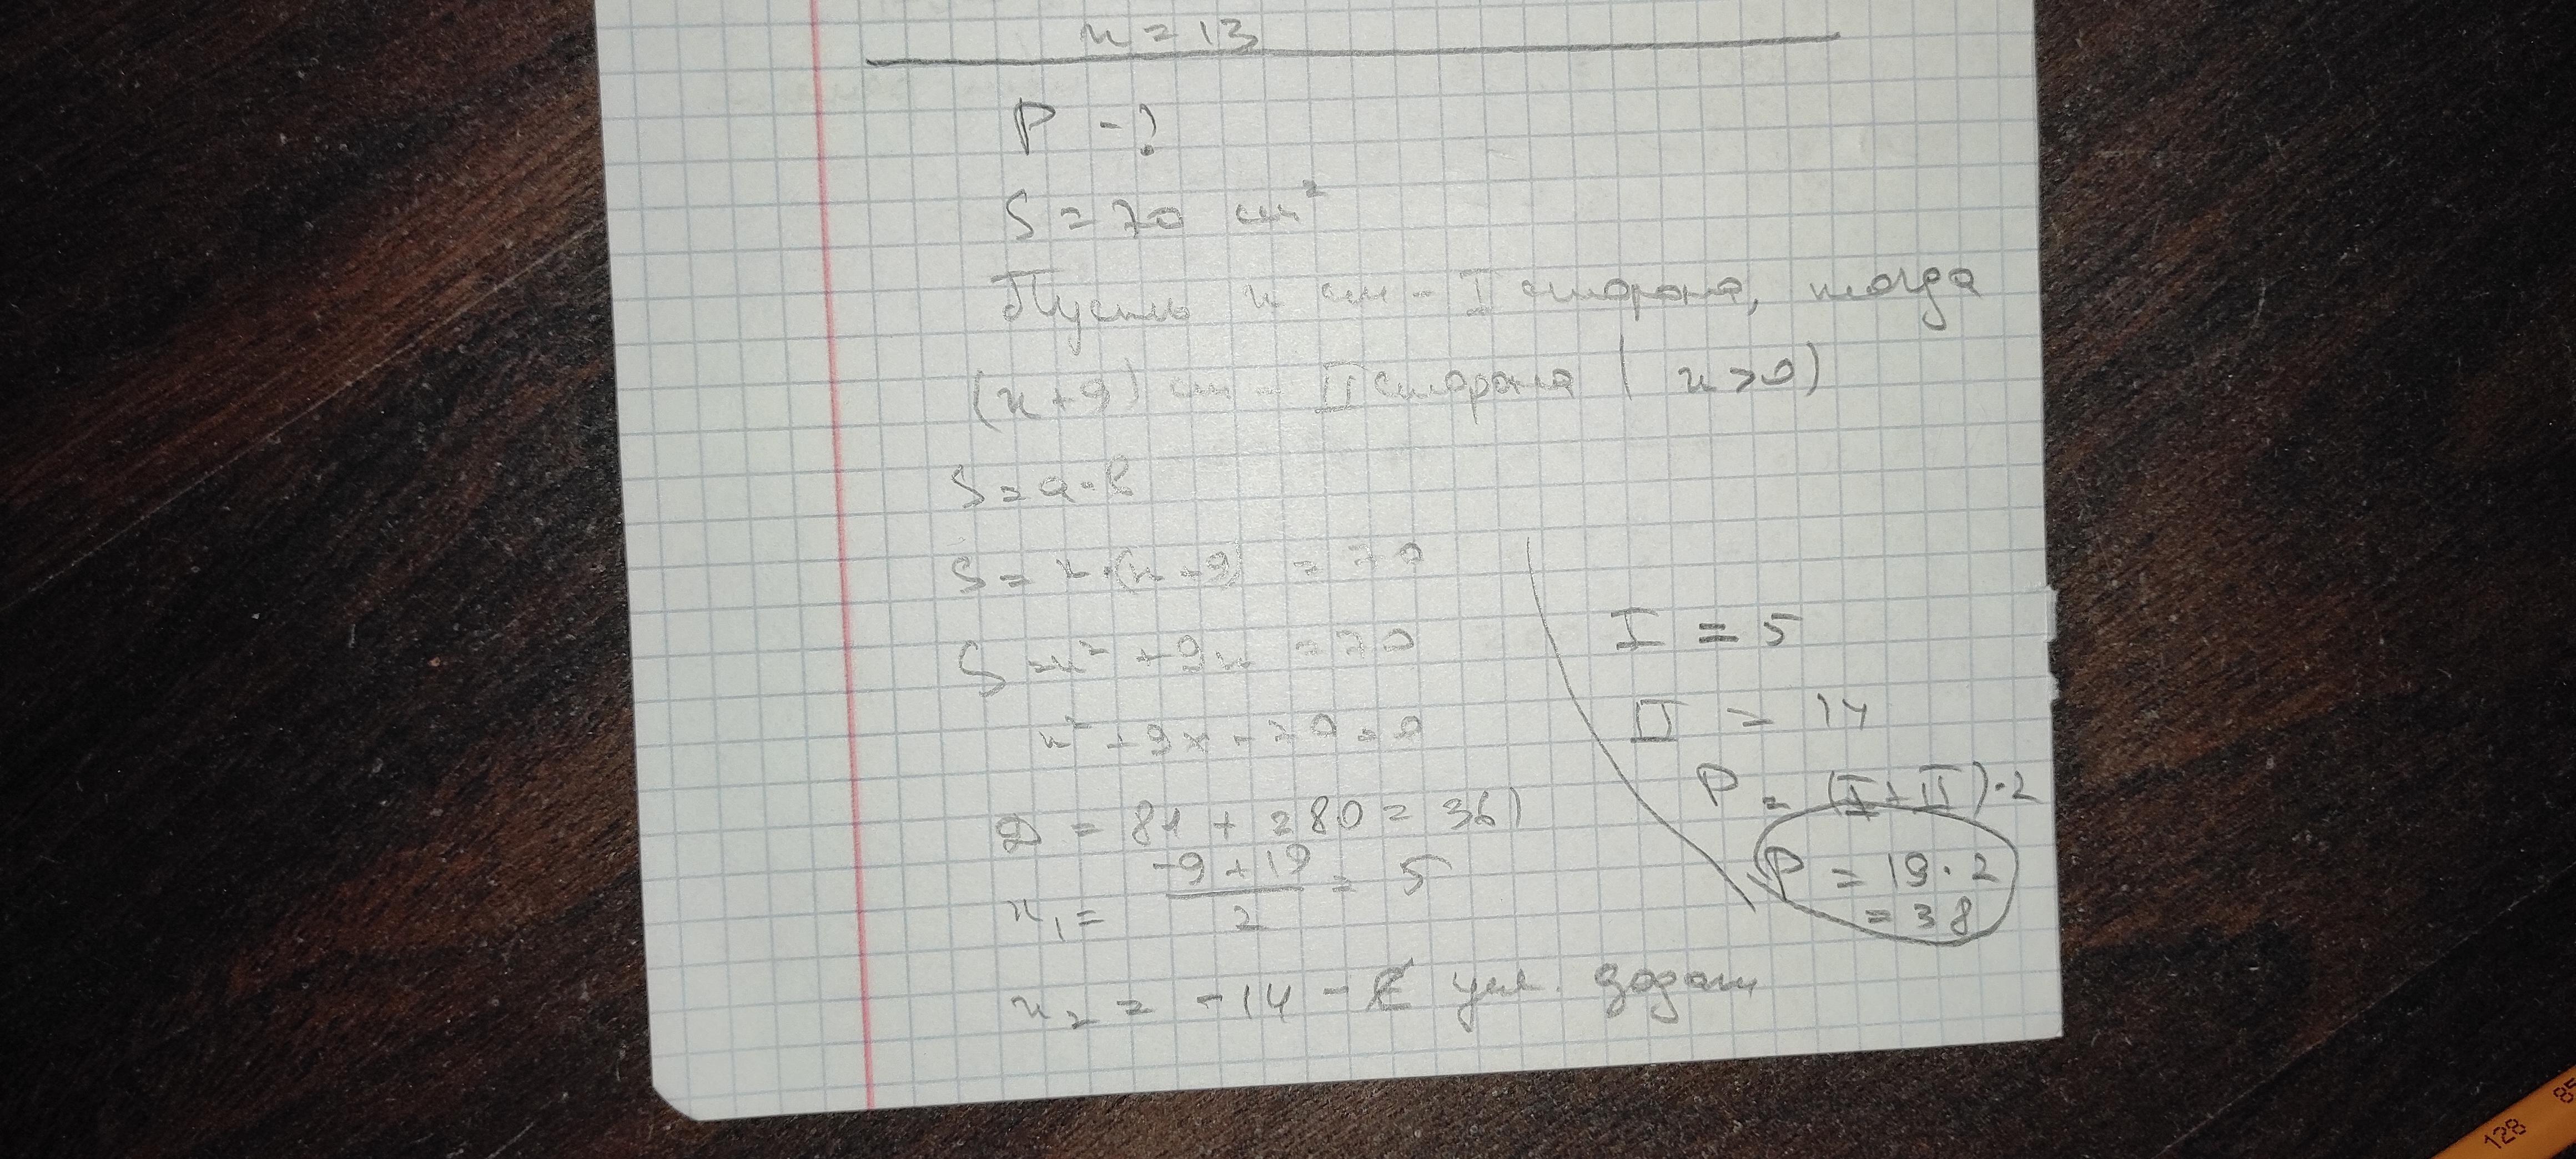 x = 13
P - ?
S = 70 см²
Пусть x см - I сторона, тогда
(x+9) см - II сторона (x>0)
S = a·b
S = x·(x+9) = 70
S = x² + 9x = 70
x² + 9x - 70 = 0
D = 81 + 280 = 361
x₁ = (-9+19)/2 = 5
x₂ = -14 - ∉ усл. задачи
I = 5
II = 14
P = (I+II)·2
P = 19·2
= 38
128
85